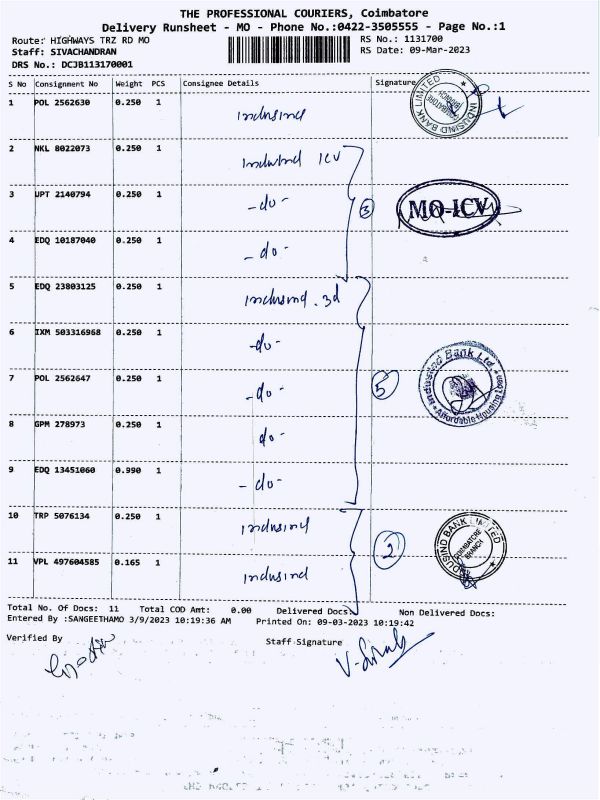 THE PROFESSIONAL COURIERS, Coimbatore
Delivery Runsheet - MO - Phone No.:0422-3505555 - Page No.:1
Route: HIGHWAYS TRZ RD MO
RS No.: 1131700
Staff: SIVACHANDRAN
RS Date: 09-Mar-2023
DRS No.: DCJB113170001
S No Consignment No Weight PCS Consignee Details Signature
1 POL 2562630 0.250 1 Indusind
INDUSIND BANK LIMITED
COIMBATORE BRANCH
2 NKL 8022073 0.250 1 Indusind ICV
3 UPT 2140794 0.250 1 -do- 3
MO-ICV
4 EDQ 10187040 0.250 1 -do-
5 EDQ 23803125 0.250 1 Indusind .3d
6 IXM 503316968 0.250 1 -do-
7 POL 2562647 0.250 1 -do- 5
Indusind Bank Ltd
Affordable Housing Loan
8 GPM 278973 0.250 1 do-
9 EDQ 13451060 0.990 1 -do-
10 TRP 5076134 0.250 1 Indusind 2
INDUSIND BANK LIMITED
COIMBATORE BRANCH
11 VPL 497604585 0.165 1 indusind
Total No. Of Docs: 11 Total COD Amt: 0.00 Delivered Docs: Non Delivered Docs:
Entered By :SANGEETHAMO 3/9/2023 10:19:36 AM Printed On: 09-03-2023 10:19:42
Verified By Staff Signature